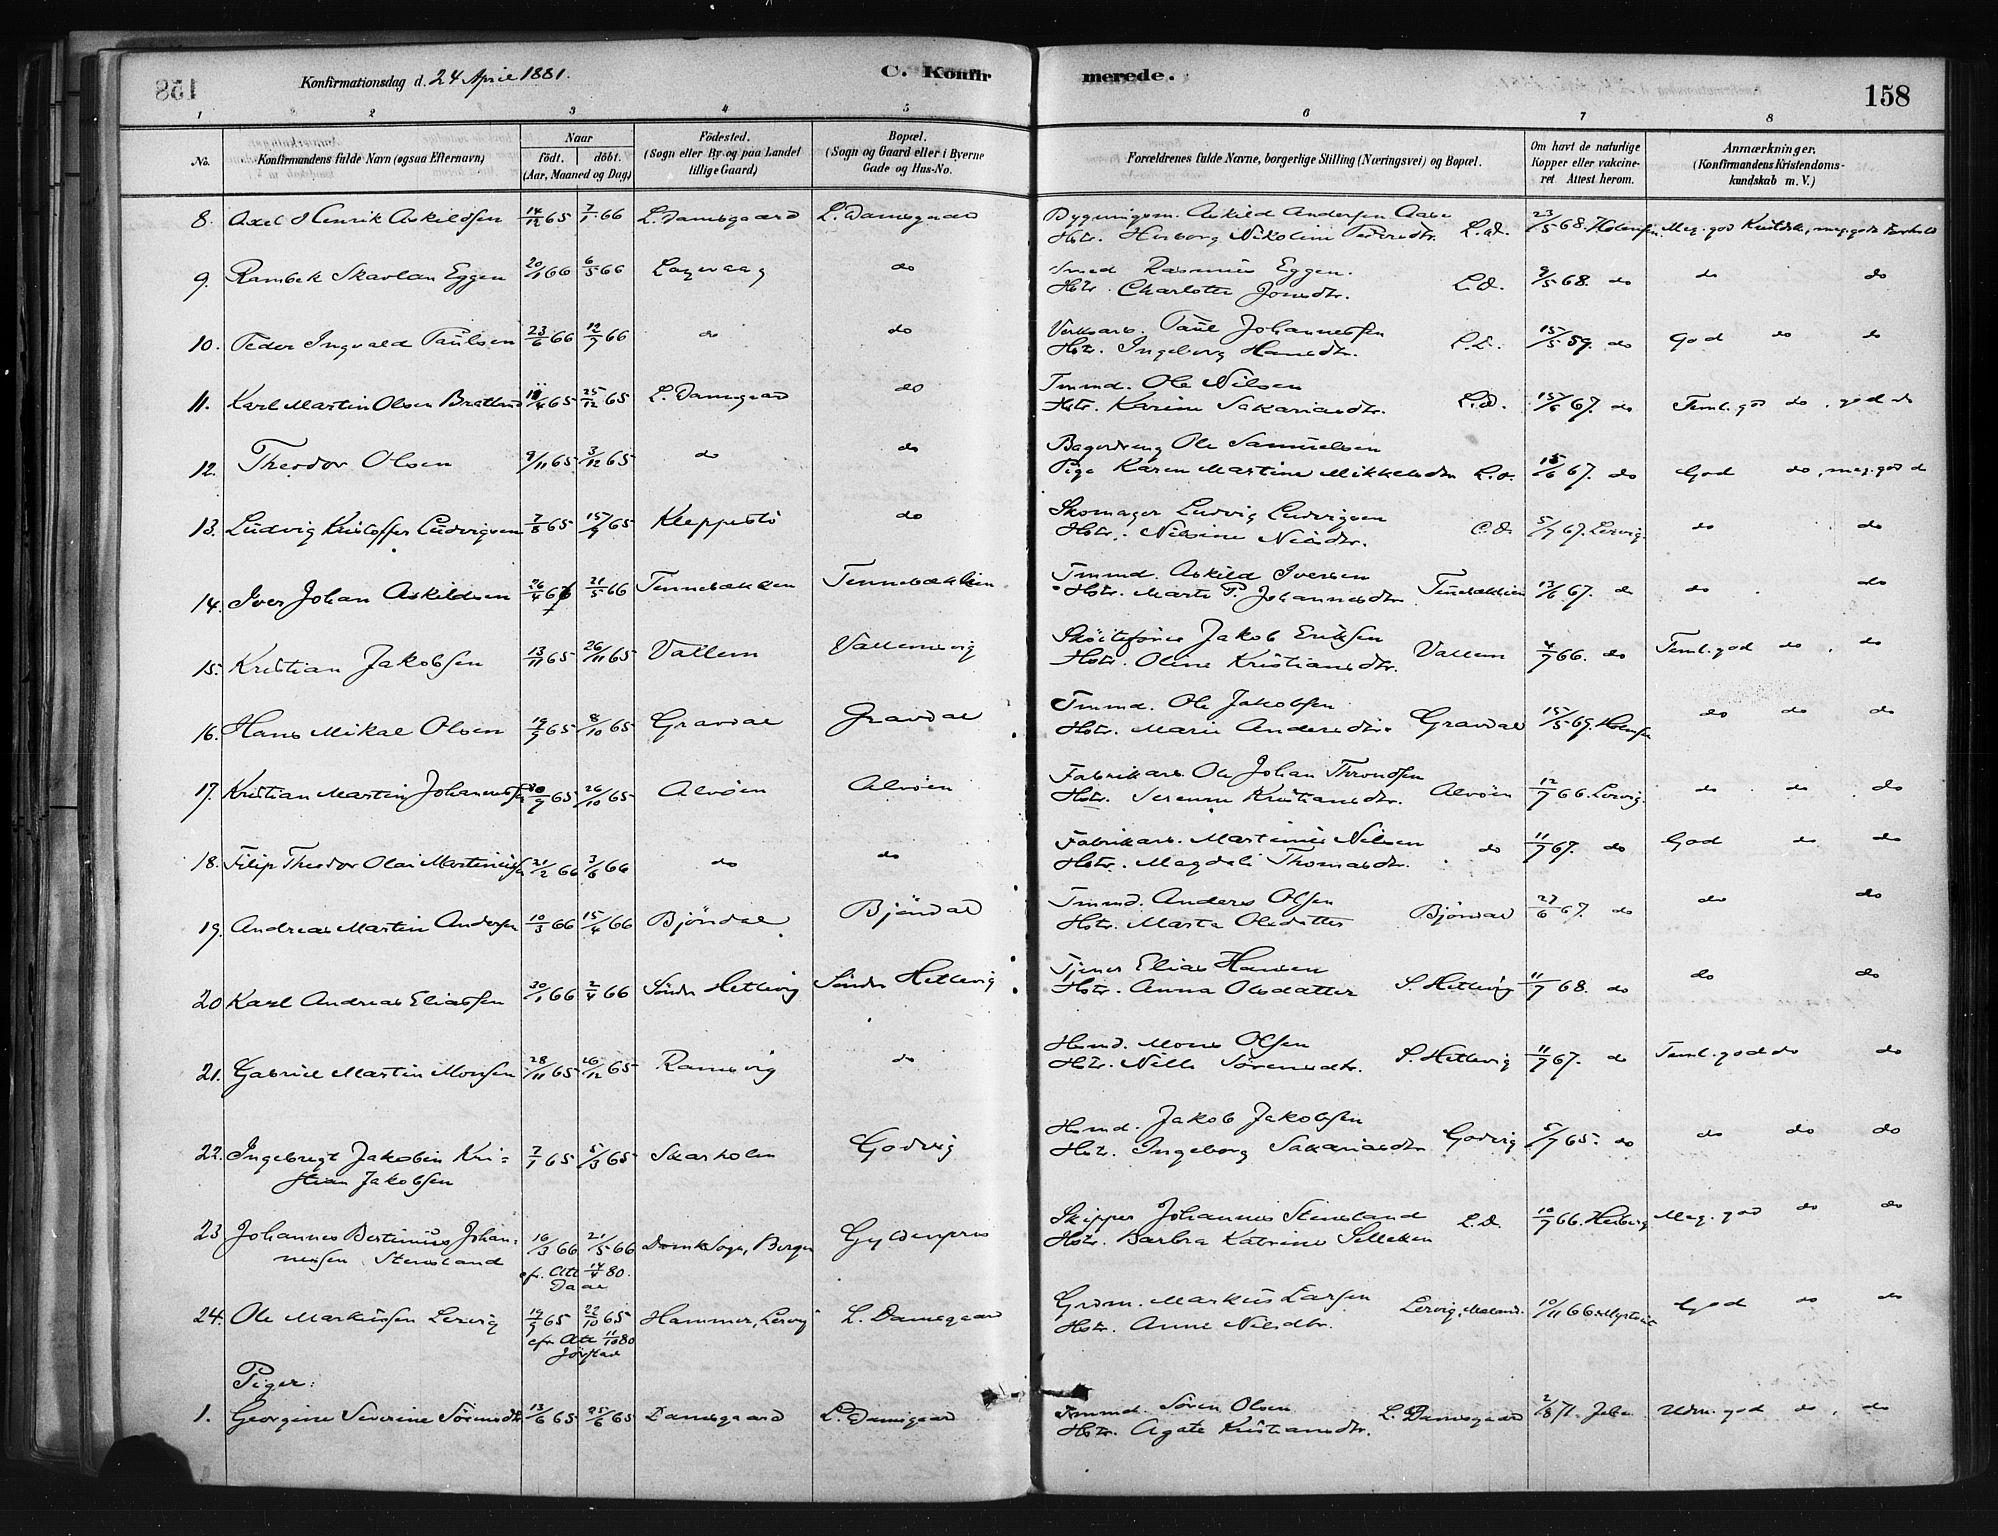 158 Konfirmationsdag d. 24 April 1881. C. Konfir merede. 158
1 2 3 4 5 6 7 8
No. Konfirmandens fulde Navn (ogsaa Efternavn) Naar født. døbt. (Aar, Maaned og Dag) Födested. (Sogn eller By og paa Landet tillige Gaard) Bopæl. (Sogn og Gaard eller i Byerne Gade og Hus-No. Forældrenes fulde Navne, borgerlige Stilling (Næringsvei) og Bopæl. Om havt de naturlige Kopper eller vakcineret Attest herom. Anmærkninger. (Konfirmandens Kristendomskundskab m. V.)
8. Axel Henrik Askildsen 14/12 65 7/1 66 L. Damsgaard L. Damsgaard Bygningsm. Askild Andersen Aase
Hstr. Herborg Nikoline Pedersdtr. L.D. 23/5 68. Holmsen Meg. god Kundsk., meg. gode Forhold
9. Rambek Skavlan Eggen 20/1 66 6/5 66 Laxevaag do Smed Rasmus Eggen.
Hstr. Charlotte Jonsdtr. L.D. 9/5 68. do do do
10. Peder Ingvald Paulsen 23/6 66 12/7 66 do do Verksarb. Paul Johannessen
Hstr. Ingeborg Hansdtr. L.D. 15/5 59. do God do do
11. Karl Martin Olsen Bratlund 25/12 65 L. Damsgaard do Tmmd. Ole Nilsen
Hstr. Karine Sakariasdtr. L.D. 15/6 67. do Teml. god do, god do
12. Theodor Olsen 9/11 65 3/12 65 do do Bagerdreng Ole Samuelsen
Pige Karen Martine Mikkelsdtr L.D. 15/6 67. do God do, meg. god d
13. Ludvig Kristoffer Ludvigsen 7/8 65 15/9 65 Kleppestö do Skomager Ludvig Ludvigsen
Hstr. Nilsine Nilsdtr. L.D. 5/7 67. Lervig. do do
14. Iver Johan Askildsen 26/4 66 21/5 66 Tennebækken Tennebækken Tmmd. Askild Iversen
Hstr. Marte P. Johannesdtr Tennebækken 13/6 67. do do do
15. Kristian Jakobsen 13/11 65 26/11 65 Vallem Vallemsvig Skøitefører Jakob Eriksen
Hstr. Oline Kristiansdtr. Vallem 4/7 66. do Teml. god do, do
16. Hans Mikal Olsen 19/9 65 8/10 65 Gravdal Gravdal Tmmd. Ole Jakobsen
Hstr. Marie Andersdtr. Gravdal 15/5 69. Holmsen do do do
17. Kristian Martin Johannessen 30/9 65 26/10 65 Alvöen Alvöen Fabrikarb. Ole Johan Throndsen
Hstr. Serene Kristiansdtr. Alvöen 12/7 66. Lervig. do do do
18. Filip Theodor Olai Martinussen 21/2 66 3/6 66 do do Fabrikarb. Martinus Nilsen
Hstr. Magdeli Thomasdtr. do 11/7 67. do God do do
19. Andreas Martin Andersen 10/3 66 15/4 66 Bjöndal Bjöndal Tmmd. Anders Olsen
Hstr. Marta Olsdatter Bjöndal 27/6 67. do do do
20 Karl Andreas Eliassen 30/1 66 2/4 66 Söndr Hetlevig Söndr Hetlevig Tjener Elias Hansen
Hstr. Anna Olsdatter S. Hetlevig 11/7 68. do do do
21. Gabriel Martin Monsen 28/11 65 26/12 65 Ramsvig do Hsmd. Mons Olsen
Hstr. Nille Sörensdtr. S. Hetlevig 11/7 67. do Teml. god do do
22. Ingebregt Jakobin Kri= 7/1 65 5/3 65 Skarholm Godvig Hsmd. Jakob Jakobsen
stian Jakobsen Hstr. Ingeborg Sakariasdtr Godvig 5/7 65. do do do do
23 Johannes Bertinius Johan- 16/3 66 21/5 66 Domk Sogn, Bergen Gyldenpris Skipper Johannes Stensland
nessen Stensland Hstr. Barbra Katrine Selleken L.D. 10/7 66. Heiberg Meg. god do do
cfr. Att 14/4 80.
Daae
24. Ole Markussen Lervig 19/9 65 22/10 65 Hammer, Lervig L. Damsgaard Grdm. Markus Larsen
Hstr. Anne Nilsdtr. Lervig, Meland. 10/11 66 God do do
cfr. Att 11/10 80
Jörstad
Piger:
1. Georgine Severine Sörensdtr 13/6 65 25/6 65 Damsgaard L. Damsgaard Tmmd. Sören Olsen
Hstr. Agate Kristiansdtr. L. Damsgaard 2/8 71. Udm. god do, do